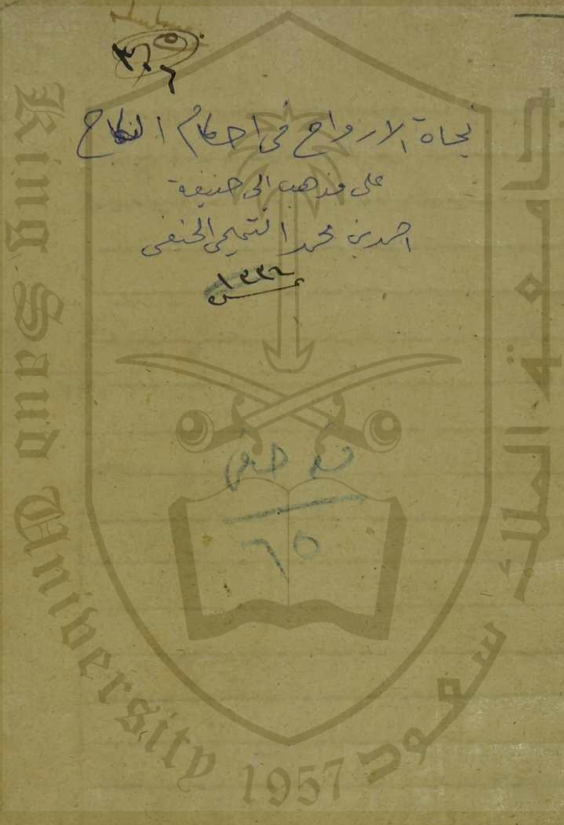 ٣٠٦
نجاة الارواح في احكام النكاح
على مذهب ابي حنيفة
احمد بن محمد التميمي الحنفي
٦٥
King Saud University 1957
جامعة الملك سعود